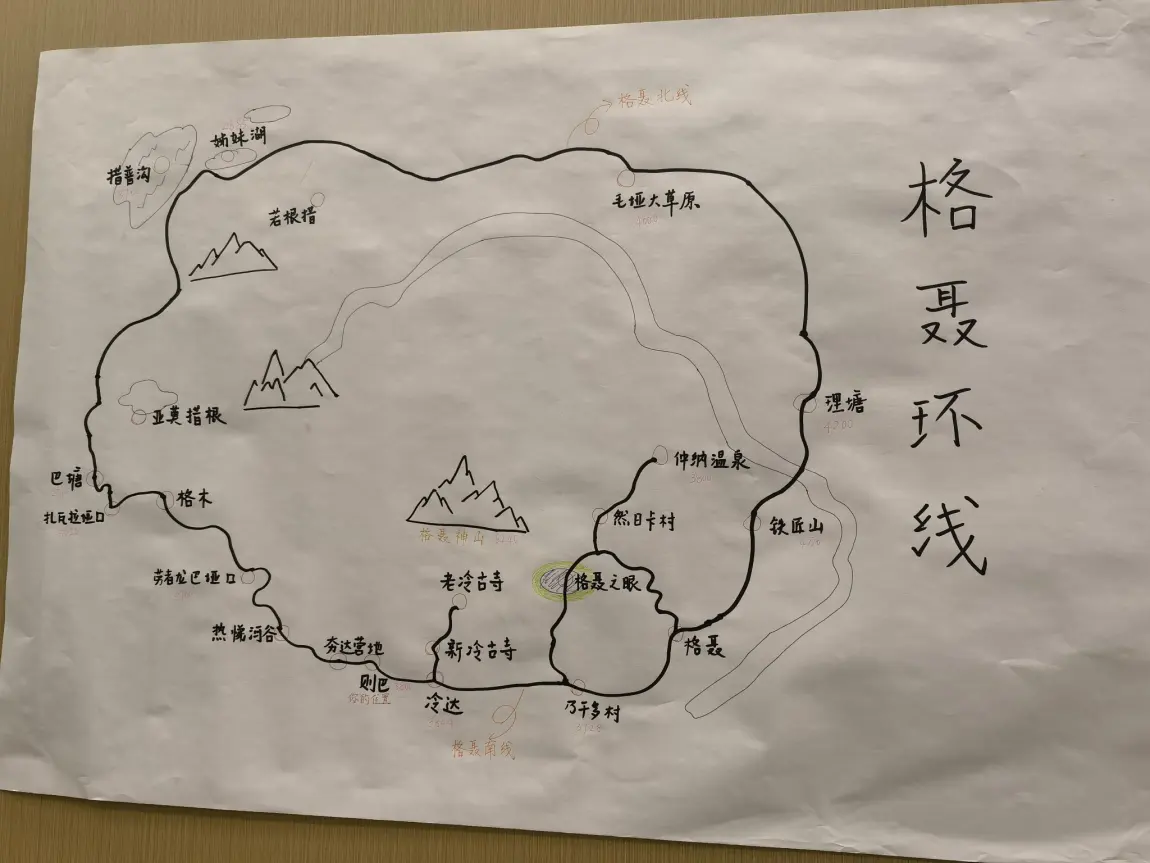 格聂环线
格聂北线
姊妹湖
措普沟
若根措
毛垭大草原
4000
亚莫措根
理塘
4200
巴塘
扎瓦拉垭口
格木
仲纳温泉
然日卡村
铁匠山
格聂神山
格聂之眼
老冷古寺
新冷古寺
热悌河谷
夯达营地
则巴
你的位置
冷达
乃干多村
格聂
格聂南线